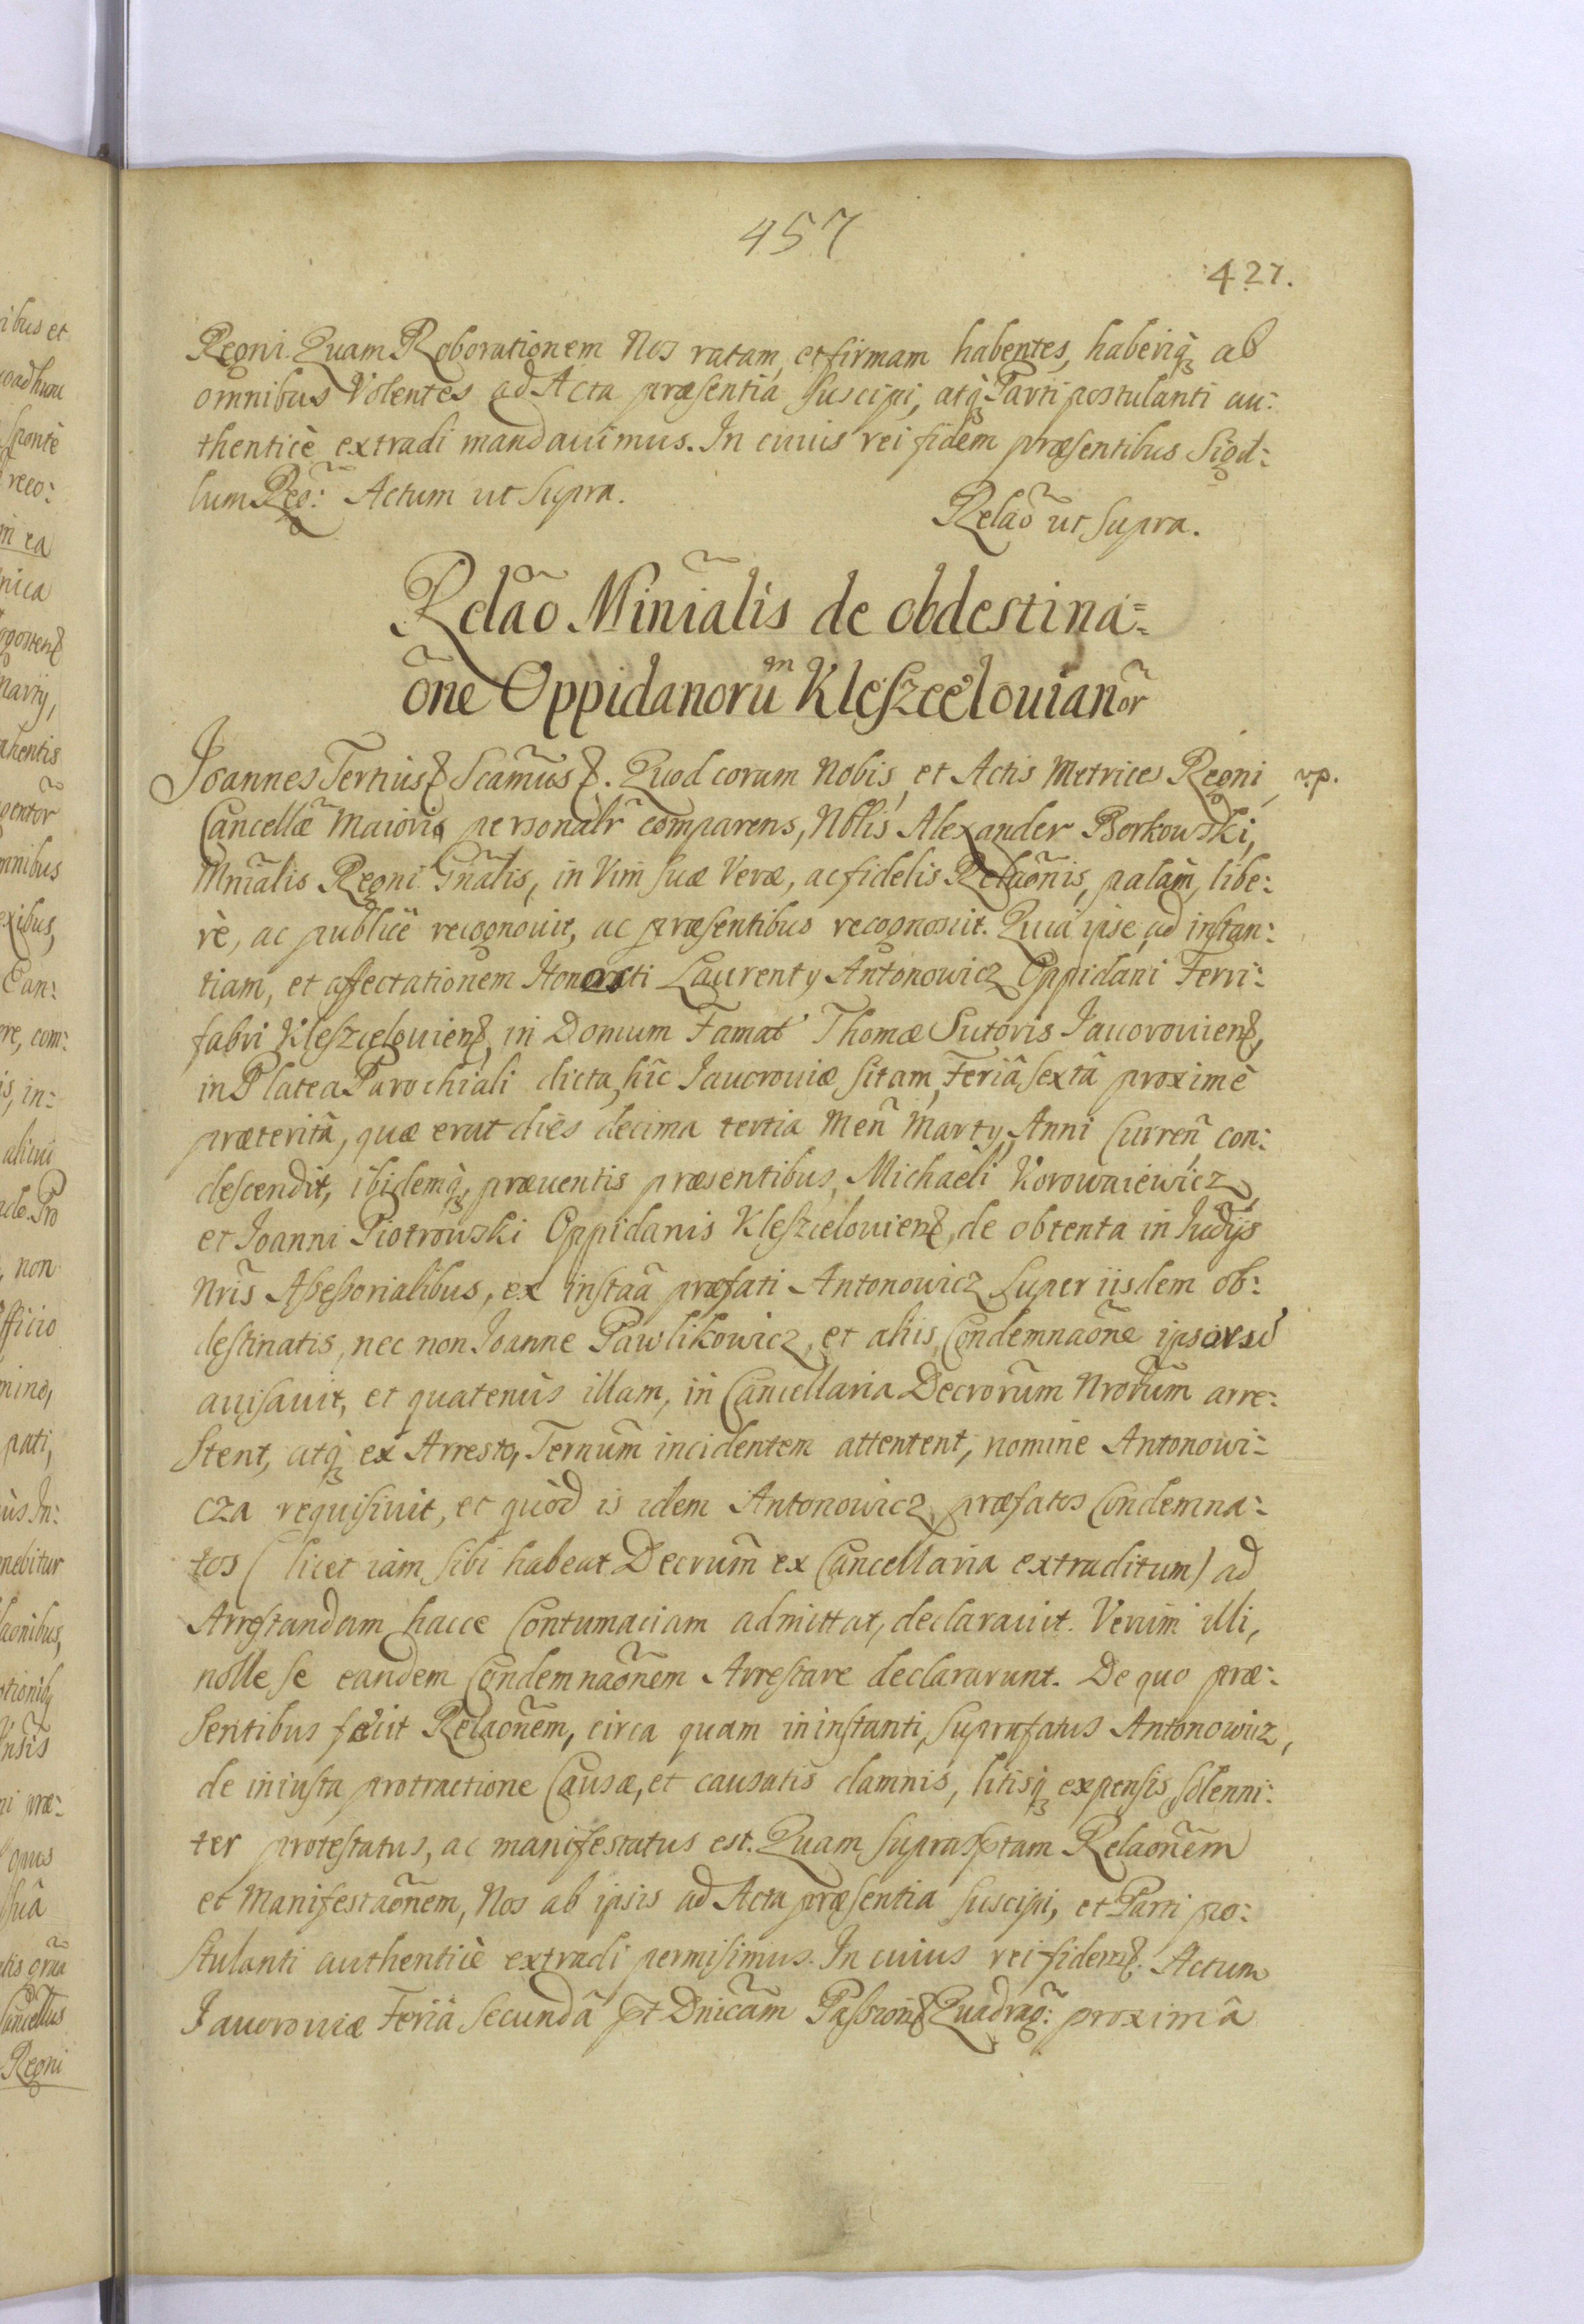 457
427.
Regni. Quam Roborationem Nos ratam, et firmam habentes, haberiq́ꝫ ab
omnibus Volentes ad Acta præsentia suscipi, atq́ꝫ Parti postulanti au:
thenticè extradi mandauimus. In cuius rei fidem præsentibus Sigil:
lum Reg̃: Actum ut supra.
Relaõ ut supra.
Relaõ Miniãlis de obdestina=
õne Oppidanorũm Kleszczelouianõr
Joannes Tertius ꝛc Scãmus ꝛc. Quod coram Nobis, et Actis Metrices Regni, r.p.
Cancellæ̃ Maioris personalr̃ comparens, Nblis Alexander Borkowski,
Mniãlis Regni Gñalis, in Vim suæ Veræ, ac fidelis Relaõnis, palàm, libe:
rè, ac publicè recognouit, ac præsentibus recognoscit. Quia ipse ad instan:
tiam, et affectationem Honesti Laurenty Antonowicz Oppidani Ferri:
fabri Kleszczelouien̄, in Domum Famat̕ Thomæ Sutoris Jauorouien̄,
in Platea Parochiali dicta, hîc Jauorouiæ sitam, Feriâ sextâ proximè
præteritâ, quæ erat dies decima tertia Meñ Marty, Anni Curreñ con:
descendit, ibidemq́ꝫ præuentis præsentibus, Michaeli Korowaiewicz,
et Joanni Piotrowski Oppidanis Kleszczelouien̄, de obtenta in Judỹs
Nr̃is Assessorialibus, ex instãa præfati Antonowicz super iisdem ob:
destinatis, nec non Joanne Pawlikowicz, et aliis, Condemnaõne ipsos
auisauit, et quatenùs illam, in Cancellaria Decrorũm Nrorũm arre:
stent, atq́ꝫ ex Arresto, Ternũm incidentem attentent, nomine Antonowi=
cza requisiuit, et quòd is idem Antonowicz, præfatos Condemna:
tos (licet iàm sibi habeat Decrum̃ ex Cancellaria extraditum) ad
Arrestandam hacce Contumaciam admittat, declarauit. Verùm illi,
nolle se eandem Condemnaõnem Arrestare declararunt. De quo præ:
sentibus fecit Relaõnem, circa quam in instanti, suprafatus Antonowicz,
de iniusta protractione Causæ, et causatis damnis, litisq́ꝫ expensis, solenni:
ter protestatus, ac manifestatus est. Quam suprasptam Relaõnem
et Manifestaõnem, Nos ab ipsis ad Acta præsentia suscipi, et Parti po:
stulanti authenticè extradi permisimus. In cuius rei fidem ꝛc. Actum
Jauorouiæ Feriâ secundâ pt Dnicãm Passion̄ Quadrag̃: proximâ